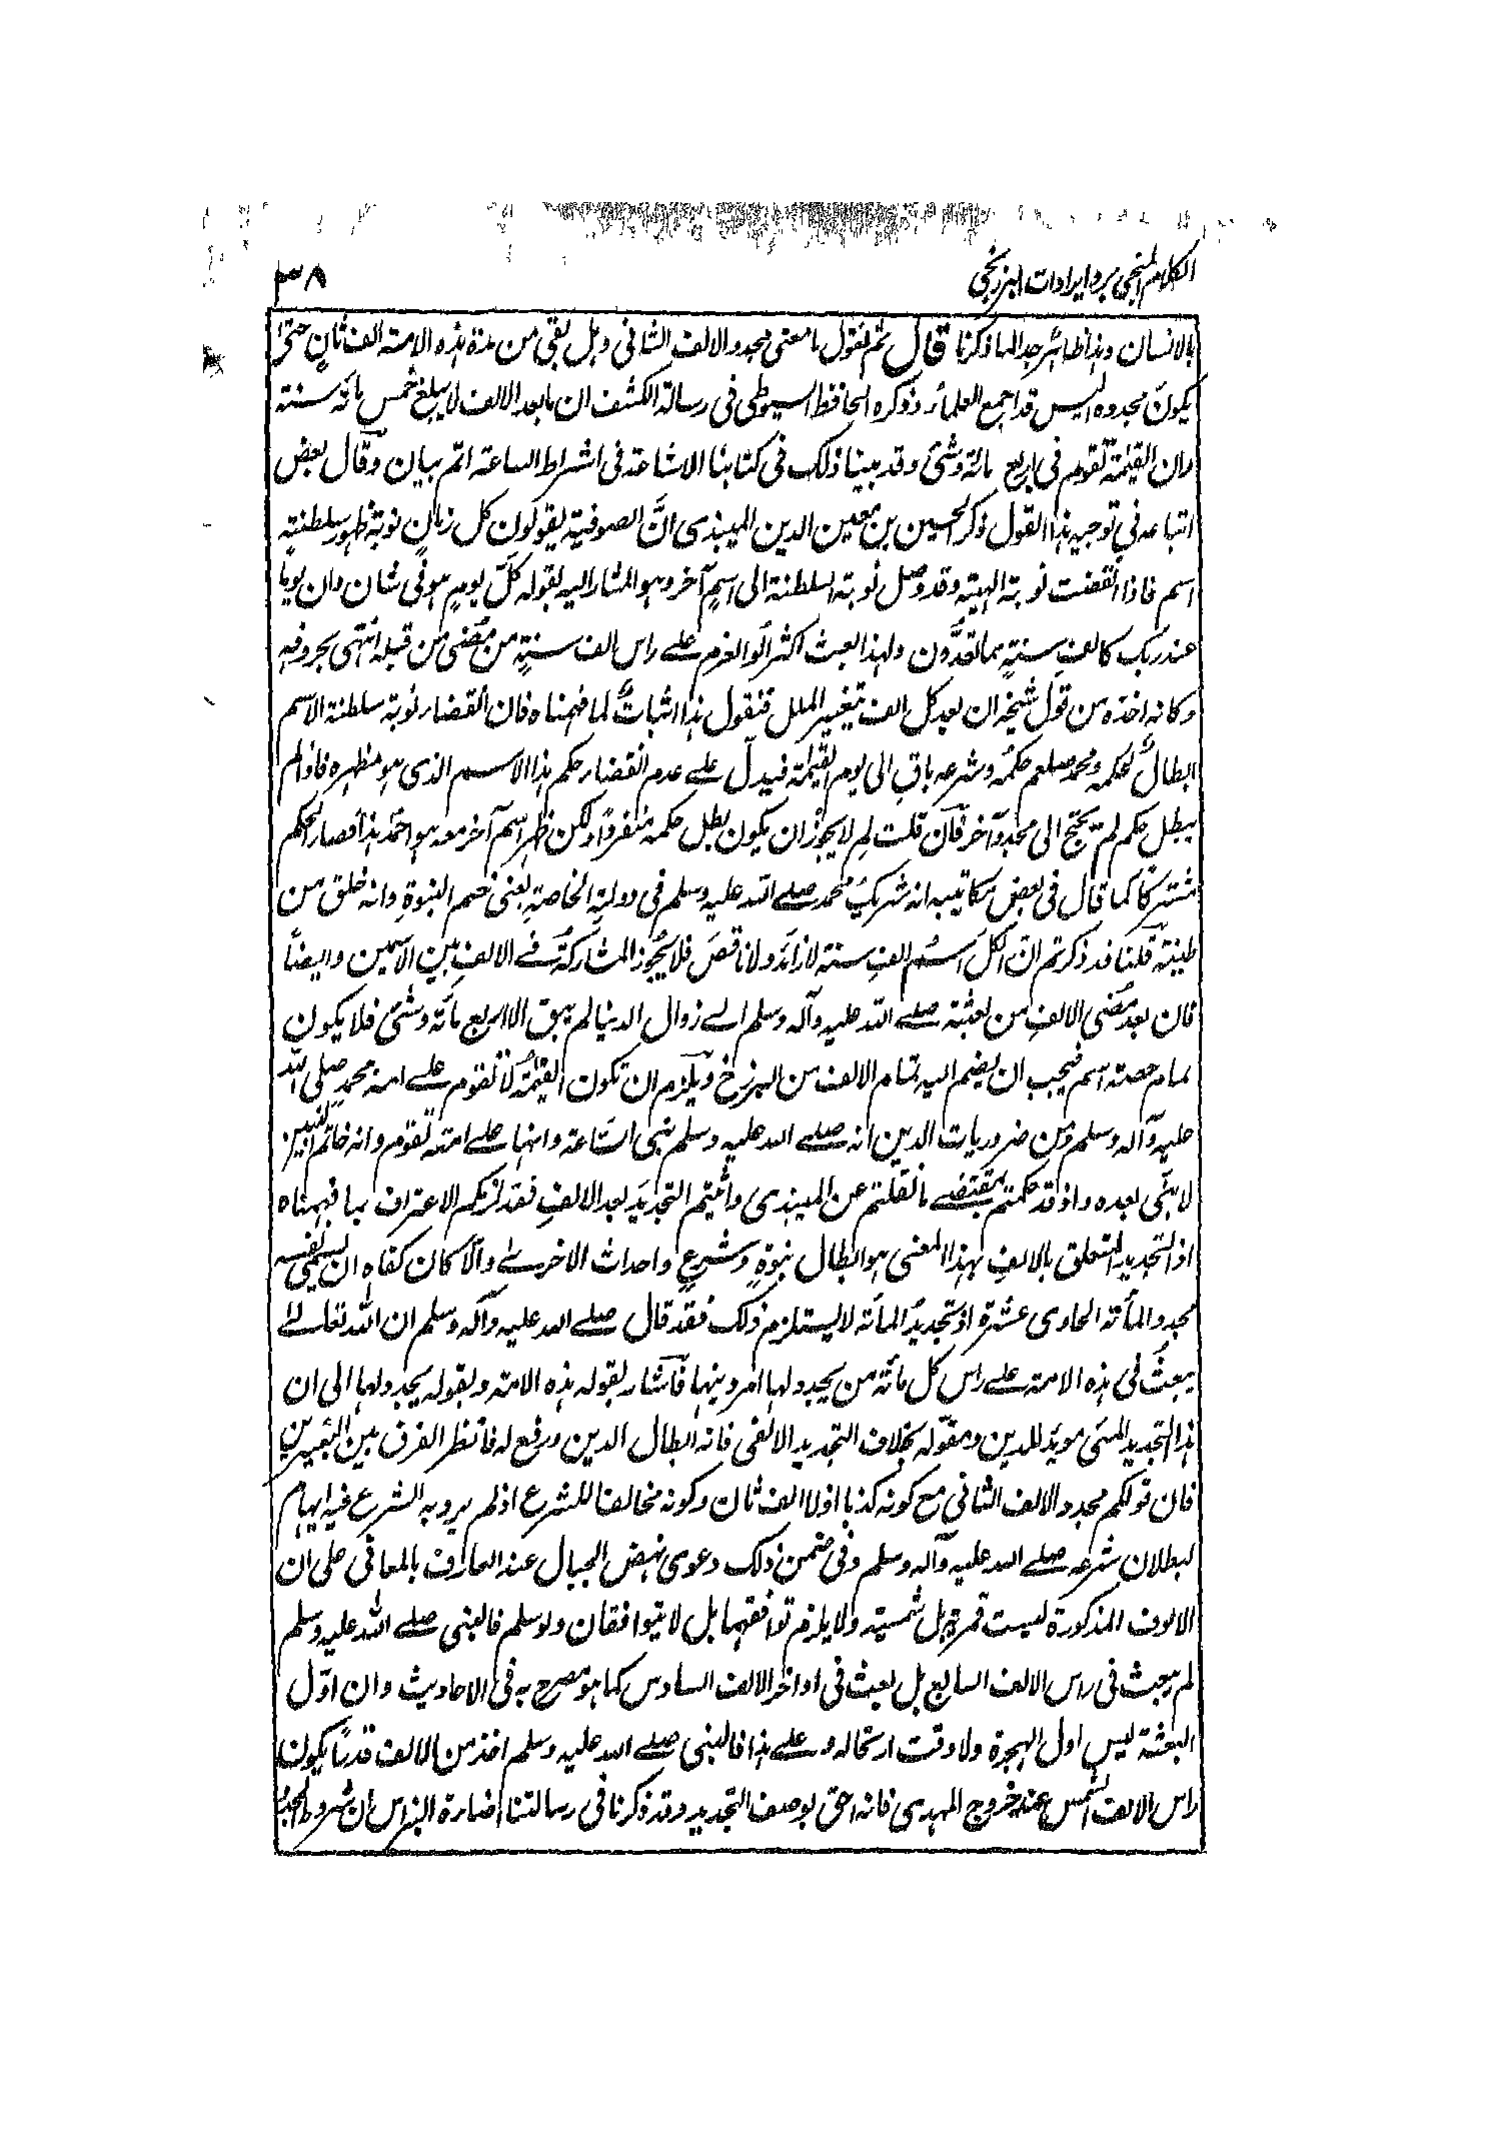 الكلام المنجى برد ايرادات البرزنجى
٣٨
بالانسان وهذا ظاهر جدا لما ذكرنا قال ثم نقول ما معنى مجدد الالف الثانى وهل بقى من مدة هذه الامة الف ثانٍ حتى
يكون مجدده اليس قد اجمع العلماء وذكره الحافظ السيوطى فى رسالة الكشف ان ما بعد الالف لا يبلغ خمس مائة سنة
وان القيمة تقوم فى اربع مائة وشئ وقد بينا ذلك فى كتابنا الاشاعة فى اشراط الساعة اتم بيان وقال بعض
اتباعه فى توجيه هذا القول ذكر الحسين بن معين الدين الميبذى انَّ الصوفية يقولون كل زمانٍ نوبة ظهور سلطنة
اسم فاذا انقضت نوبته الهية وقد وصل نوبة السلطنة الى اسمٍ آخر وهو المشار اليه بقوله كلَّ يومٍ هو فى شان وان يوما
عند ربك كالف سنةٍ مما تعدُّون ولهذا بعث اكثر اُولو العزم على راس الف سنةٍ من مضى من قبله انتهى بحروفه
وكانه اخذه من قول شيخه ان بعد كل الف تتغير الملل فنقول هذا اثباتٌ لما فهمناه فان انقضاء نوبة سلطنة الاسم
ابطالٌ لحكمه ومحمد صلعم حكمه وشرعه باقٍ الى يوم القيمة فيدل على عدم انقضاء حكم هذا الاسم الذى هو مظهره فاذا لم
يبطل حكم لم يحتج الى مجدد آخر فان قلت لم لا يجوز ان يكون بطل حكمه منفردًا ولكن ظهر اسم آخر معه هو احمد هذا فصار الحكم
مشتركًا كما قال فى بعض مكاتيبه انه شريك محمد صلى الله عليه وسلم فى دولته الخاصة يعنى ختم النبوة وانه خلق من
طينته قلنا قد ذكرتم ان لكل اسم الف سنة لا زائد ولا ناقص فلا يجوز المشاركة فى الالف بين الاسمين وايضًا
فان بعد مضى الالف من بعثته صلى الله عليه وآله وسلم الى زوال الدنيا لم يبق الا اربع مائة وشئ فلا يكون
تمام حصة اسم فيجب ان يضم اليه تمام الالف من البرزخ ويلزم ان تكون القيمة لا تقوم على امة محمد صلى الله
عليه وآله وسلم ومن ضروريات الدين انه صلى الله عليه وسلم نبى الساعة وانها على امته تقوم وانه خاتم النبيين
لا نبى بعده واذ قد حكمتم بمقتضى ما نقلتم عن الميبذى واثبتم التجديد بعد الالف فقد لزمكم الاعتراف بما فهمناه
اذ التجديد المتعلق بالالف بهذا المعنى هو ابطال نبوةٍ وشرعٍ واحداث الاخرى والا كان كفاه ان يسمى نفسه
مجدد المأة الحادى عشرة اذ تجديد المأة لا يستلزم ذلك فقد قال صلى الله عليه وآله وسلم ان الله تعالى
يبعث فى هذه الامة على راس كل مائة من يجدد لها امر دينها فاشار بقوله هذه الامة وبقوله يجدد لها الى ان
هذا التجديد المئى مويد للدين ومقوّله بخلاف التجديد الالفى فانه ابطال الدين ورفع له فانظر الفرق بين التعبيرين
فان قولكم مجدد الالف الثانى مع كونه كذبا اذ لا الف ثان وكونه مخالفا للشرع اذ لم يرد به الشرع فيه ايهام
لبطلان شرعه صلى الله عليه وآله وسلم وفى ضمن ذلك دعوى نهض الجبال عند العارف بالمعانى على ان
الالوف المذكورة ليست قمرية بل شمسية ولا يلزم توافقهما بل لا يتوافقان ولو سلم فالنبى صلى الله عليه وسلم
لم يبعث فى راس الالف السابع بل بعث فى اواخر الالف السادس كما هو مصرح به فى الاحاديث وان اوّل
البعثة ليس اول الهجرة ولا وقت ارتحاله وعلى هذا فالنبى صلى الله عليه وسلم اخذ من الالف قدرًا يكون
راس الالف الشمس عند خروج المهدى فانه احق بوصف التجديد وقد ذكرنا فى رسالتنا اضاءة النبراس ان شروط المجدد